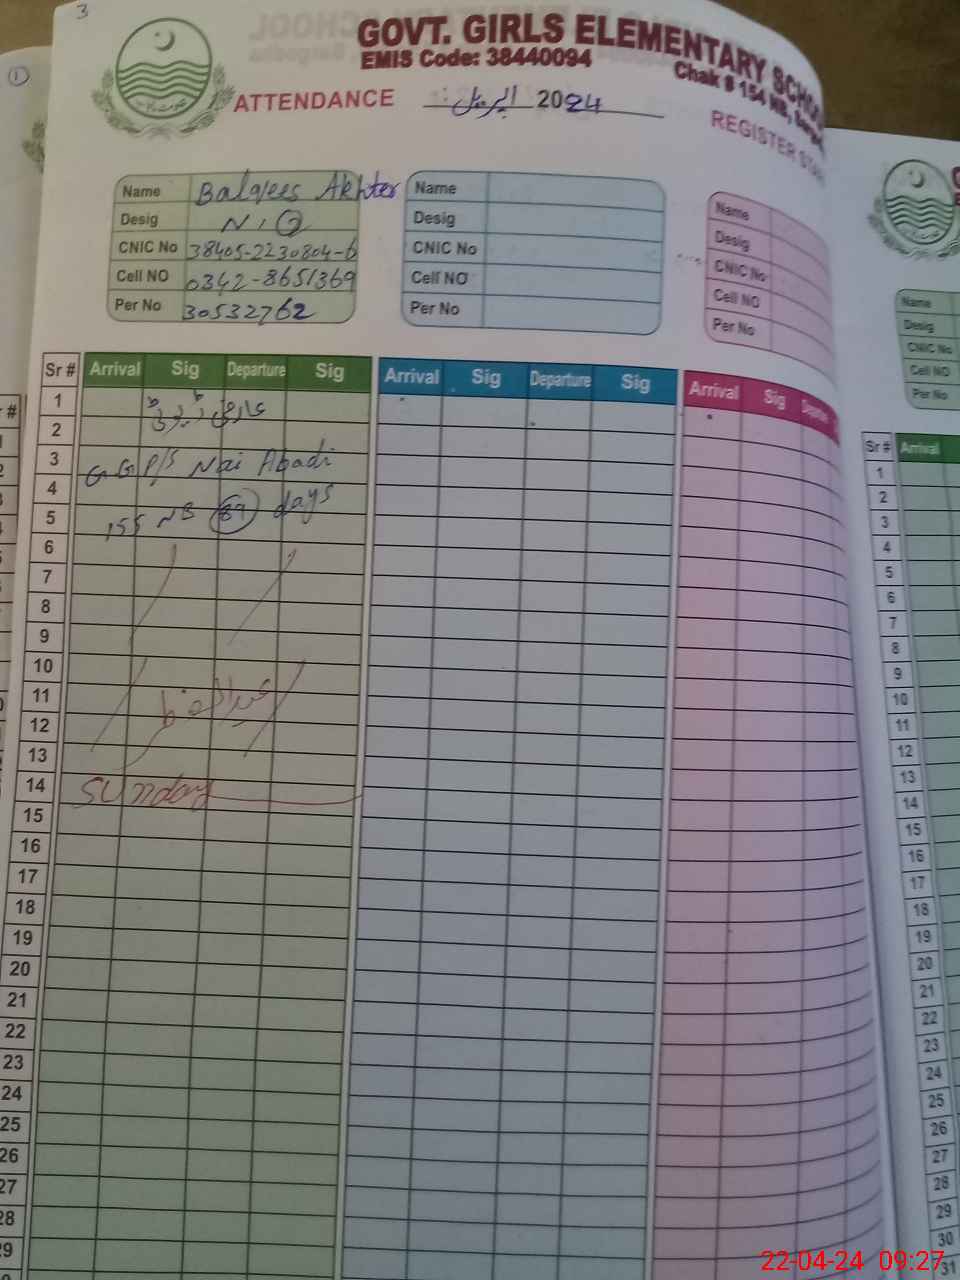 3
GOVT. GIRLS ELEMENTARY SCHOOL
EMIS Code: 38440094
Chak # 154 NB,
ATTENDANCE اپریل 2024 REGISTER
Name Balqees Akhter
Desig N.Q
CNIC No 38405-2230804-6
Cell NO 0342-8651369
Per No 30532762
Name
Desig
CNIC No
Cell NO
Per No
Name
Desig
CNIC No
Cell NO
Per No
Name
Desig
CNIC No
Cell NO
Per No
Sr # Arrival Sig Departure Sig Arrival Sig Departure Sig Arrival Sig
Sr # Arrival
1 عارضی ڈیوٹی
2
3 G G P/S Nai Abadi
4
5 155 NB 89 days
6
7
8
9
10
11 عیدالفطر
12
13
14 Sunday
15
16
17
18
19
20
21
22
23
24
25
26
27
28
29
1
2
3
4
5
6
7
8
9
10
11
12
13
14
15
16
17
18
19
20
21
22
23
24
25
26
27
28
29
30
31
22-04-24 09:27